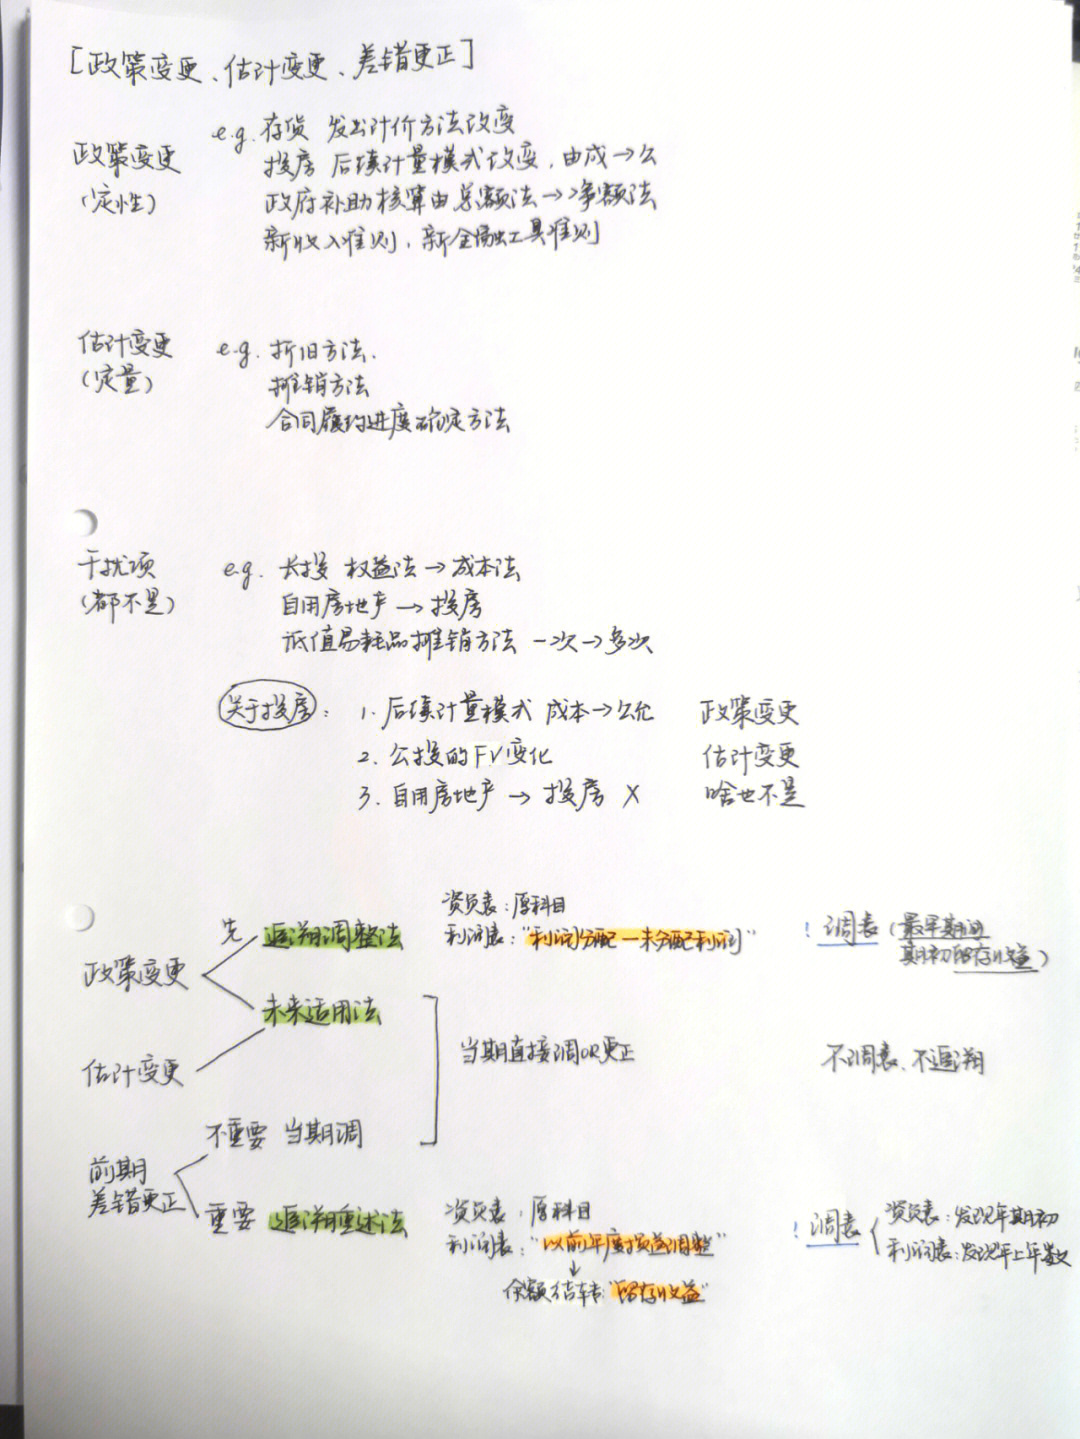 [政策变更、估计变更、差错更正]
政策变更
(定性)
e.g. 存货 发出计价方法改变
投房 后续计量模式改变,由成→公
政府补助核算由总额法→净额法
新收入准则,新金融工具准则
估计变更
(定量)
e.g. 折旧方法.
摊销方法
合同履约进度确定方法
干扰项
(都不是)
e.g. 长投 权益法→成本法
自用房地产→投房
低值易耗品摊销方法 一次→多次
关于投房: 1. 后续计量模式 成本→公允 政策变更
2. 公投的FV变化 估计变更
3. 自用房地产 → 投房 X 啥也不是
政策变更
先 追溯调整法
资负表:原科目
利润表:"利润分配—未分配利润"
! 调表 (最早期间
期初留存收益)
未来适用法
估计变更
当期直接调OR更正 不调表、不追溯
前期
差错更正
不重要 当期调
重要 追溯重述法
资负表:原科目
利润表:"以前年度损益调整"
↓
余额结转:"留存收益"
! 调表
资负表:发现年期初
利润表:发现年上年数